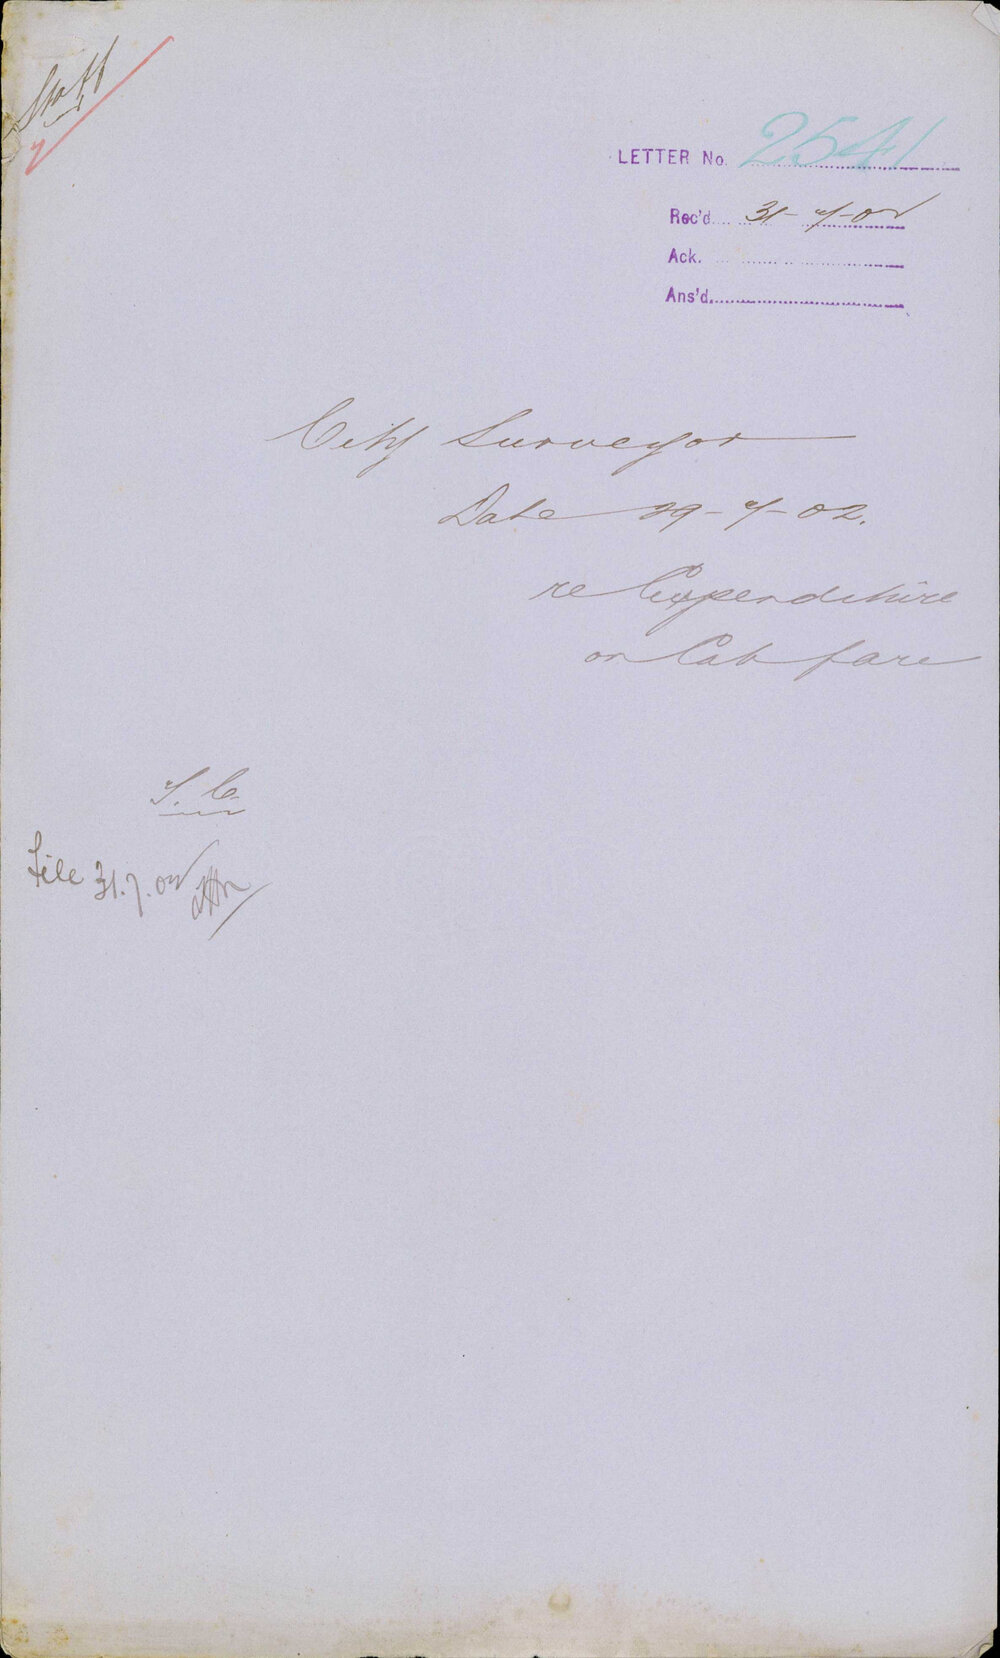 Staff
LETTER No. 2541
Rec'd. 31-7-02
Ack.
Ans'd.
City Surveyor
Date 29-7-02.
re Expenditure
on Cab fare
T.C.
File 31.7.02